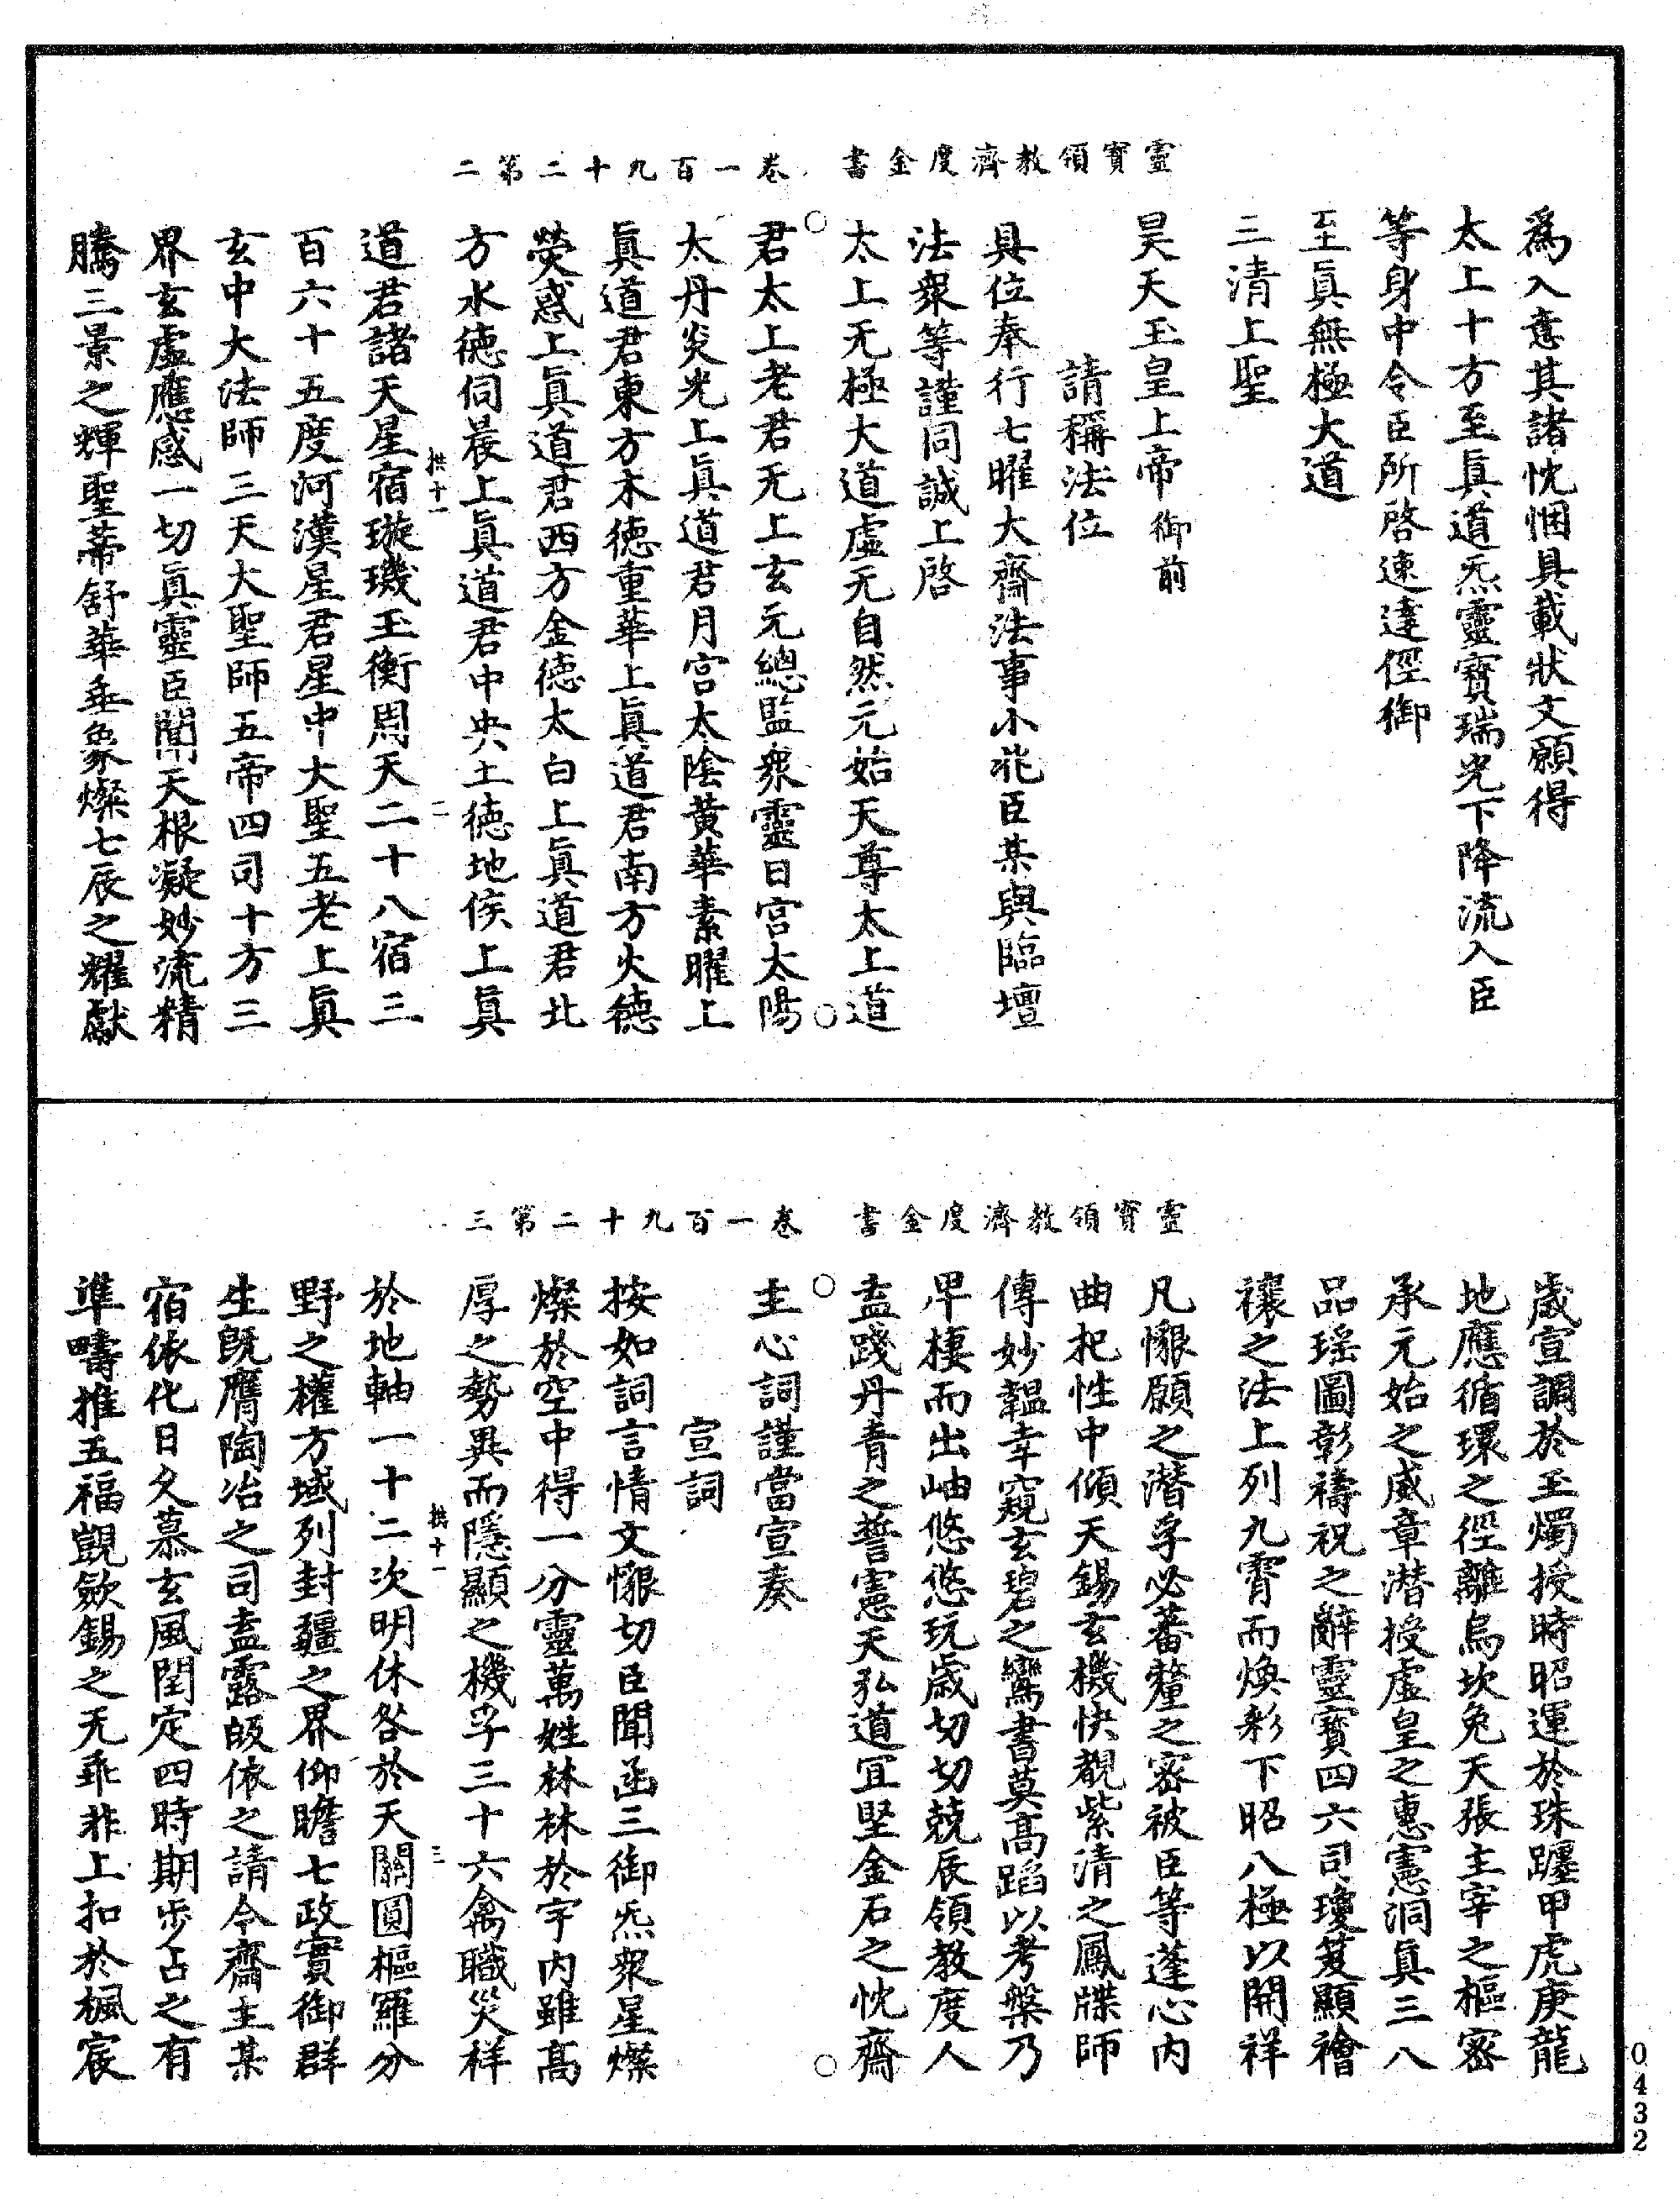 靈寶領教濟度金書　卷一百九十二第二
爲入意其諸忱悃具載狀文願得
太上十方至眞道炁靈寶瑞光下降流入臣
等身中令臣所啓速達徑御
至眞無極大道
三清上聖
昊天玉皇上帝御前
請稱法位
具位奉行七曜大齋法事小兆臣某與臨壇
法衆等謹同誠上啓
太上无極大道虛无自然元始天尊太上道
君太上老君无上玄元總監衆靈日宮太陽
太丹炎光上眞道君月宮太陰黃華素曜上
眞道君東方木德重華上眞道君南方火德
熒惑上眞道君西方金德太白上眞道君北
方水德伺晨上眞道君中央土德地侯上眞
拱十一　二
道君諸天星宿璇璣玉衡周天二十八宿三
百六十五度河漢星君星中大聖五老上眞
玄中大法師三天大聖師五帝四司十方三
界玄虛應感一切眞靈臣聞天根凝妙流精
騰三景之輝聖蒂舒華垂象燦七辰之耀獻
靈寶領教濟度金書　卷一百九十二第三
歲宣調於玉燭授時昭運於珠躔甲虎庚龍
地應循環之徑離烏坎兔天張主宰之樞密
承元始之威章潛授虛皇之惠憲洞眞三八
品瑶圖彰禱祝之辭靈寶四六司瓊笈顯禬
禳之法上列九霄而煥彩下昭八極以開祥
凡懇願之潛孚必蕃釐之密被臣等蓬心内
曲杞性中傾天錫玄機快覩紫清之鳳牒師
傳妙韞幸窺玄碧之鸞書莫高蹈以考槃乃
早棲而出岫悠悠玩歲切切兢辰領教度人
盍踐丹青之誓憲天弘道冝堅金石之忱齋
主心詞謹當宣奏
宣詞
按如詞言情文懇切臣聞函三御炁衆星燦
燦於空中得一分靈萬姓林林於宇内雖高
厚之勢異而隱顯之機孚三十六禽職災祥
拱十一　三
於地軸一十二次明休咎於天關圓樞羅分
野之權方域列封疆之界仰瞻七政實御群
生旣膺陶冶之司盍露皈依之請今齋主某
宿依化日久慕玄風閏定四時期步占之有
準疇推五福覬歛錫之无乖非上扣於楓宸
0432